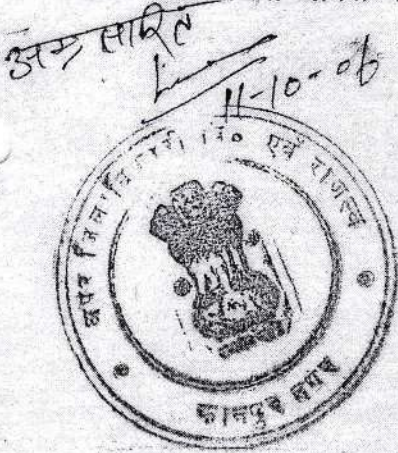 अग्रसारित
11-10-06
अपर जिलाधिकारी वि० एवं राजस्व
कानपुर नगर